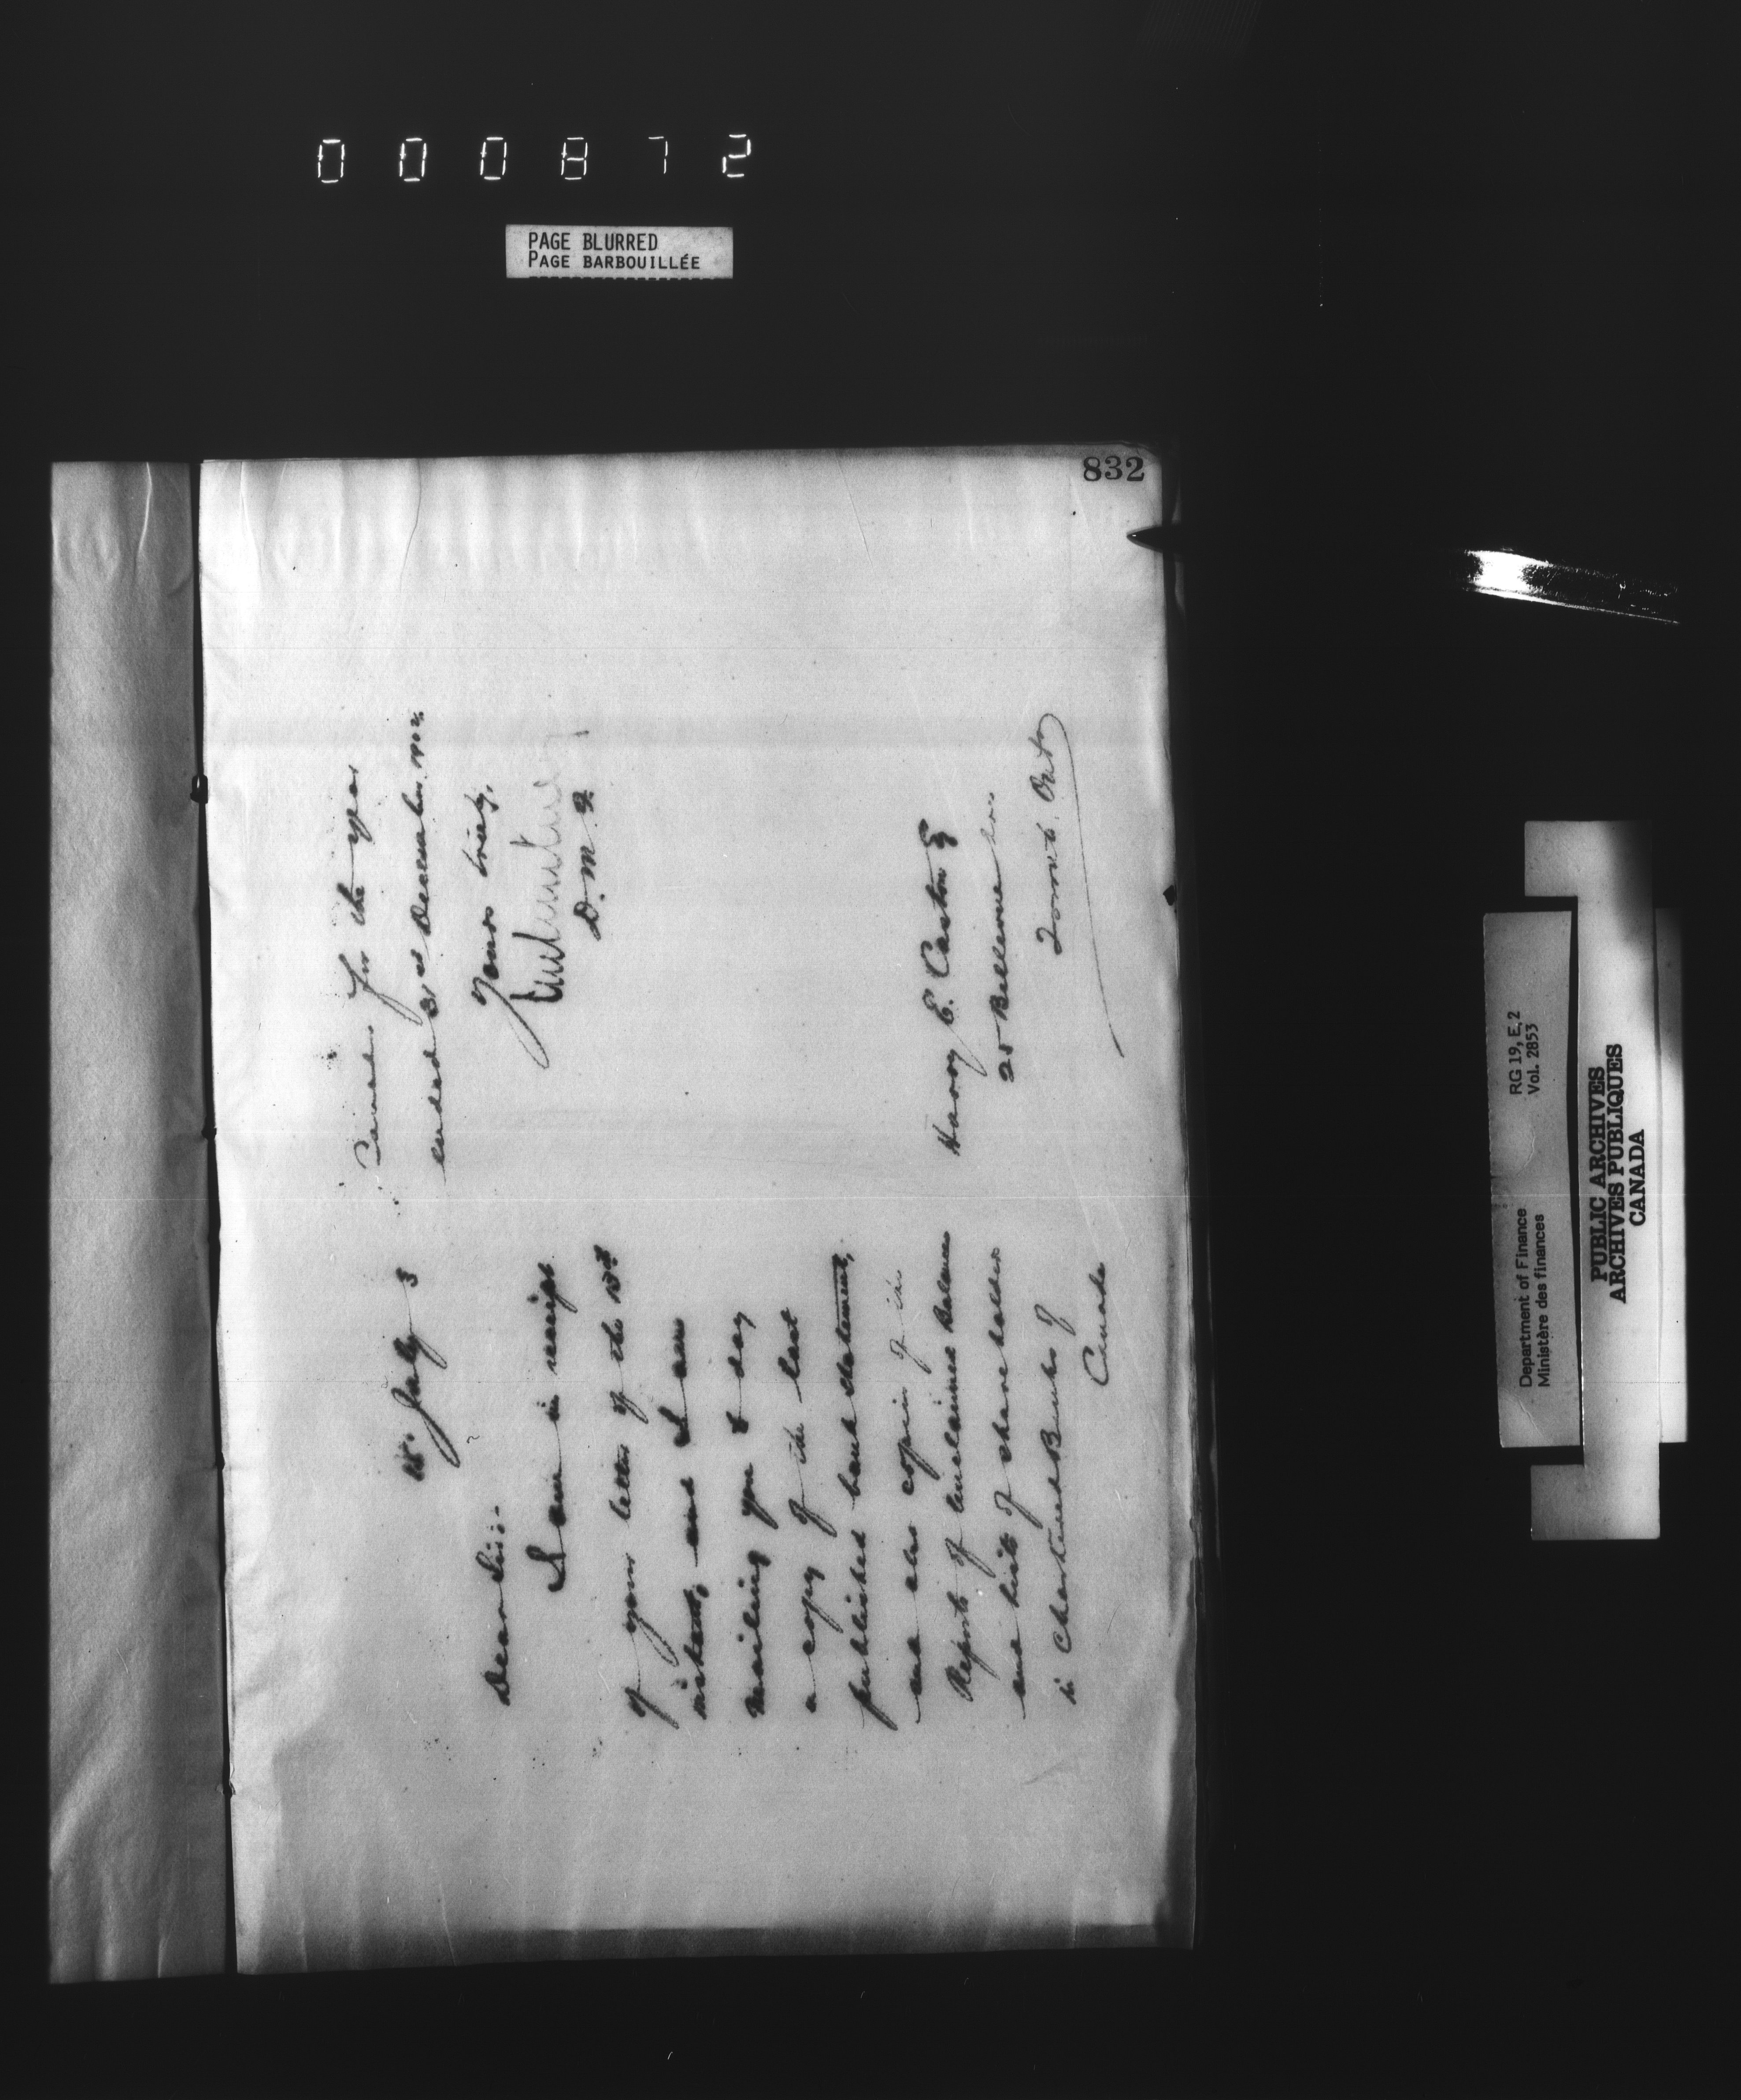 000872
PAGE BLURRED
PAGE BARBOUILLÉE
832
15 July 3
Dear Sir:-
I am in receipt
of your letter of the 13th
instant, and I am
mailing you to day
a copy of the last
published bank statement,
and also copies of the
Reports of Unclaimed Balances
and lists of shareholders
in Chartered Banks of
Canada
Canada for the year
ended 31st December, 1902.
Yours truly,
D. M. F.
Harry E. Caston Esq
25 Bellevue
Toronto, Ont.
Department of Finance
Ministère des finances
RG 19, E, 2
Vol. 2853
PUBLIC ARCHIVES
ARCHIVES PUBLIQUES
CANADA